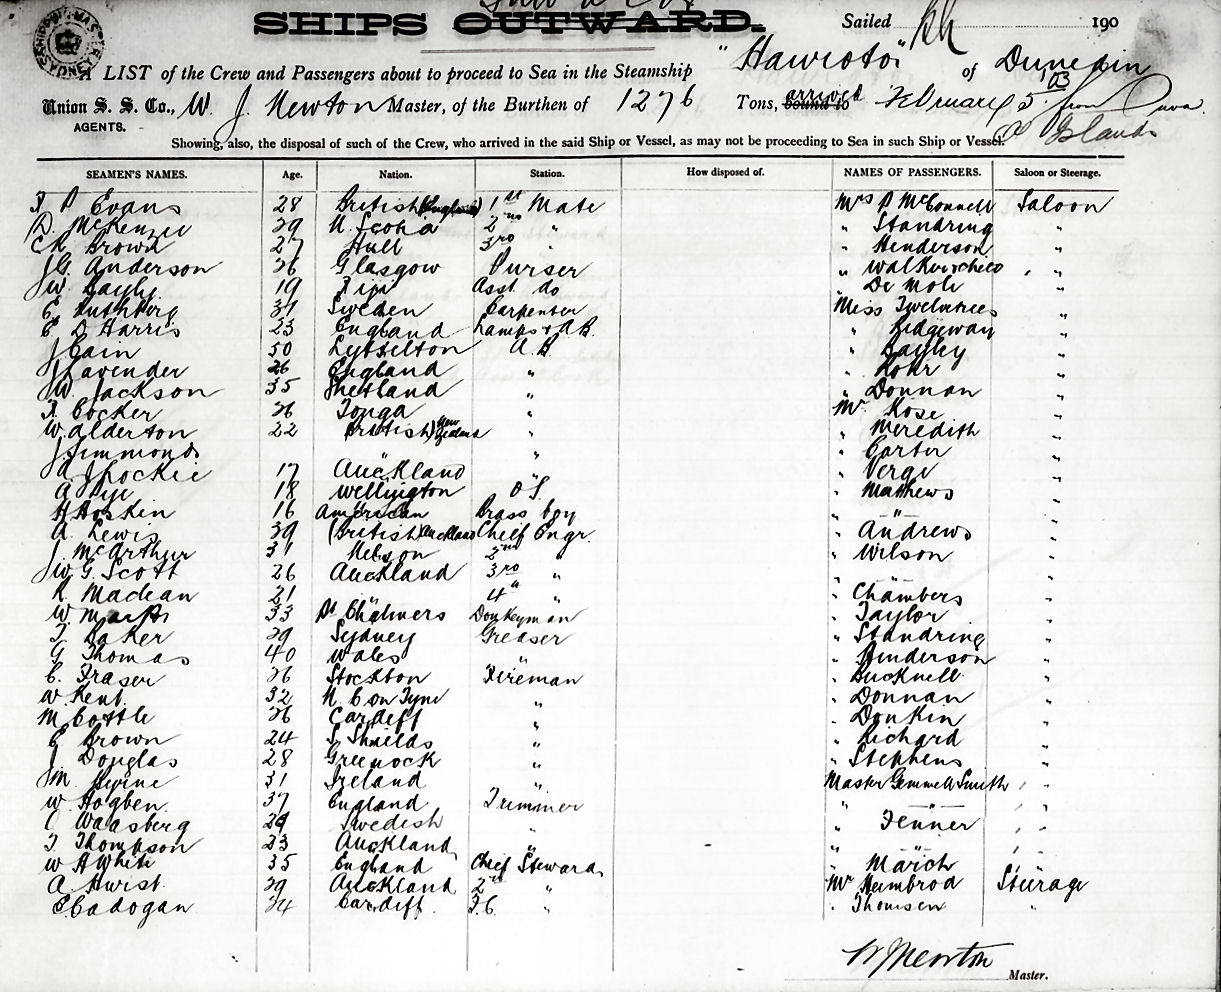 SHIPS OUTWARD.
Sailed 190
"Hawroto" of Dunedin
A LIST of the Crew and Passengers about to proceed to Sea in the Steamship
Union S. S. Co., W. J. Newton Master, of the Burthen of 1276 Tons, bound to arrived February 5 '03 from Suva
AGENTS. Islands
Showing, also, the disposal of such of the Crew, who arrived in the said Ship or Vessel, as may not be proceeding to Sea in such Ship or Vessel.
SEAMEN'S NAMES. Age. Nation. Station. How disposed of. NAMES OF PASSENGERS. Saloon or Steerage.
F P Evans 28 British (England) 1st Mate Mrs P McConnell Saloon
D. McKenzie 29 N. Scotia 2nd " " Standring "
C R Brown 27 Hull 3rd " " Henderson "
J G. Anderson 26 Glasgow Purser " Walker & child " "
J W. Bayly 19 Fiji Asst. do " De Mole "
Sweden Carpenter Miss Twelvetrees "
E D Harris 23 England Lamps & A.B. " Ridgeway "
J Cain 50 Lyttelton A.B. " Bayley "
J Lavender 26 England " " Rohr "
W. Jackson 35 Shetland " " Donnan "
F. Cocker 26 Tonga " Mr Rose "
W. Alderton 22 (British) New Zealand " " Meredith "
J. Simmonds " " Carter "
A J Lockie 17 Auckland " " Verge "
A Pye 18 Wellington O.S. " Mathews "
H Hoskin 16 American Brass boy " " "
A. Lewis 39 (British) Auckland Chief Engr. " Andrews "
J. McArthur 31 Nelson 2nd " " Wilson "
J W G. Scott 26 Auckland 3rd " " " "
R. Maclean 21 " 4th " " Chambers "
W Marks 33 Pt Chalmers Donkeyman " Taylor "
T Baker 29 Sydney Greaser " Standring "
G Thomas 40 Wales " " Henderson "
C. Fraser 26 Stockton Fireman " Bucknell "
W. Kent 32 N. C on Tyne " " Donnan "
M Cottle 26 Cardiff " " Donkin "
E Brown 24 S. Shields " " Richard "
J Douglas 28 Greenock " " Stephens "
J M Byrne 31 Ireland " Master Gemmell Smith " "
W. Hogben 37 England Trimmer " " " "
C Waasberg 29 Swedish " " Jenner " "
T Thompson 23 Auckland " " " " "
W H White 35 England Chief Steward " March "
A. Hurst 39 Auckland 2nd " Mr Heimbrod Steerage
E Cadogan 34 Cardiff F.C. " " Thomsen "
W J Newton
Master.